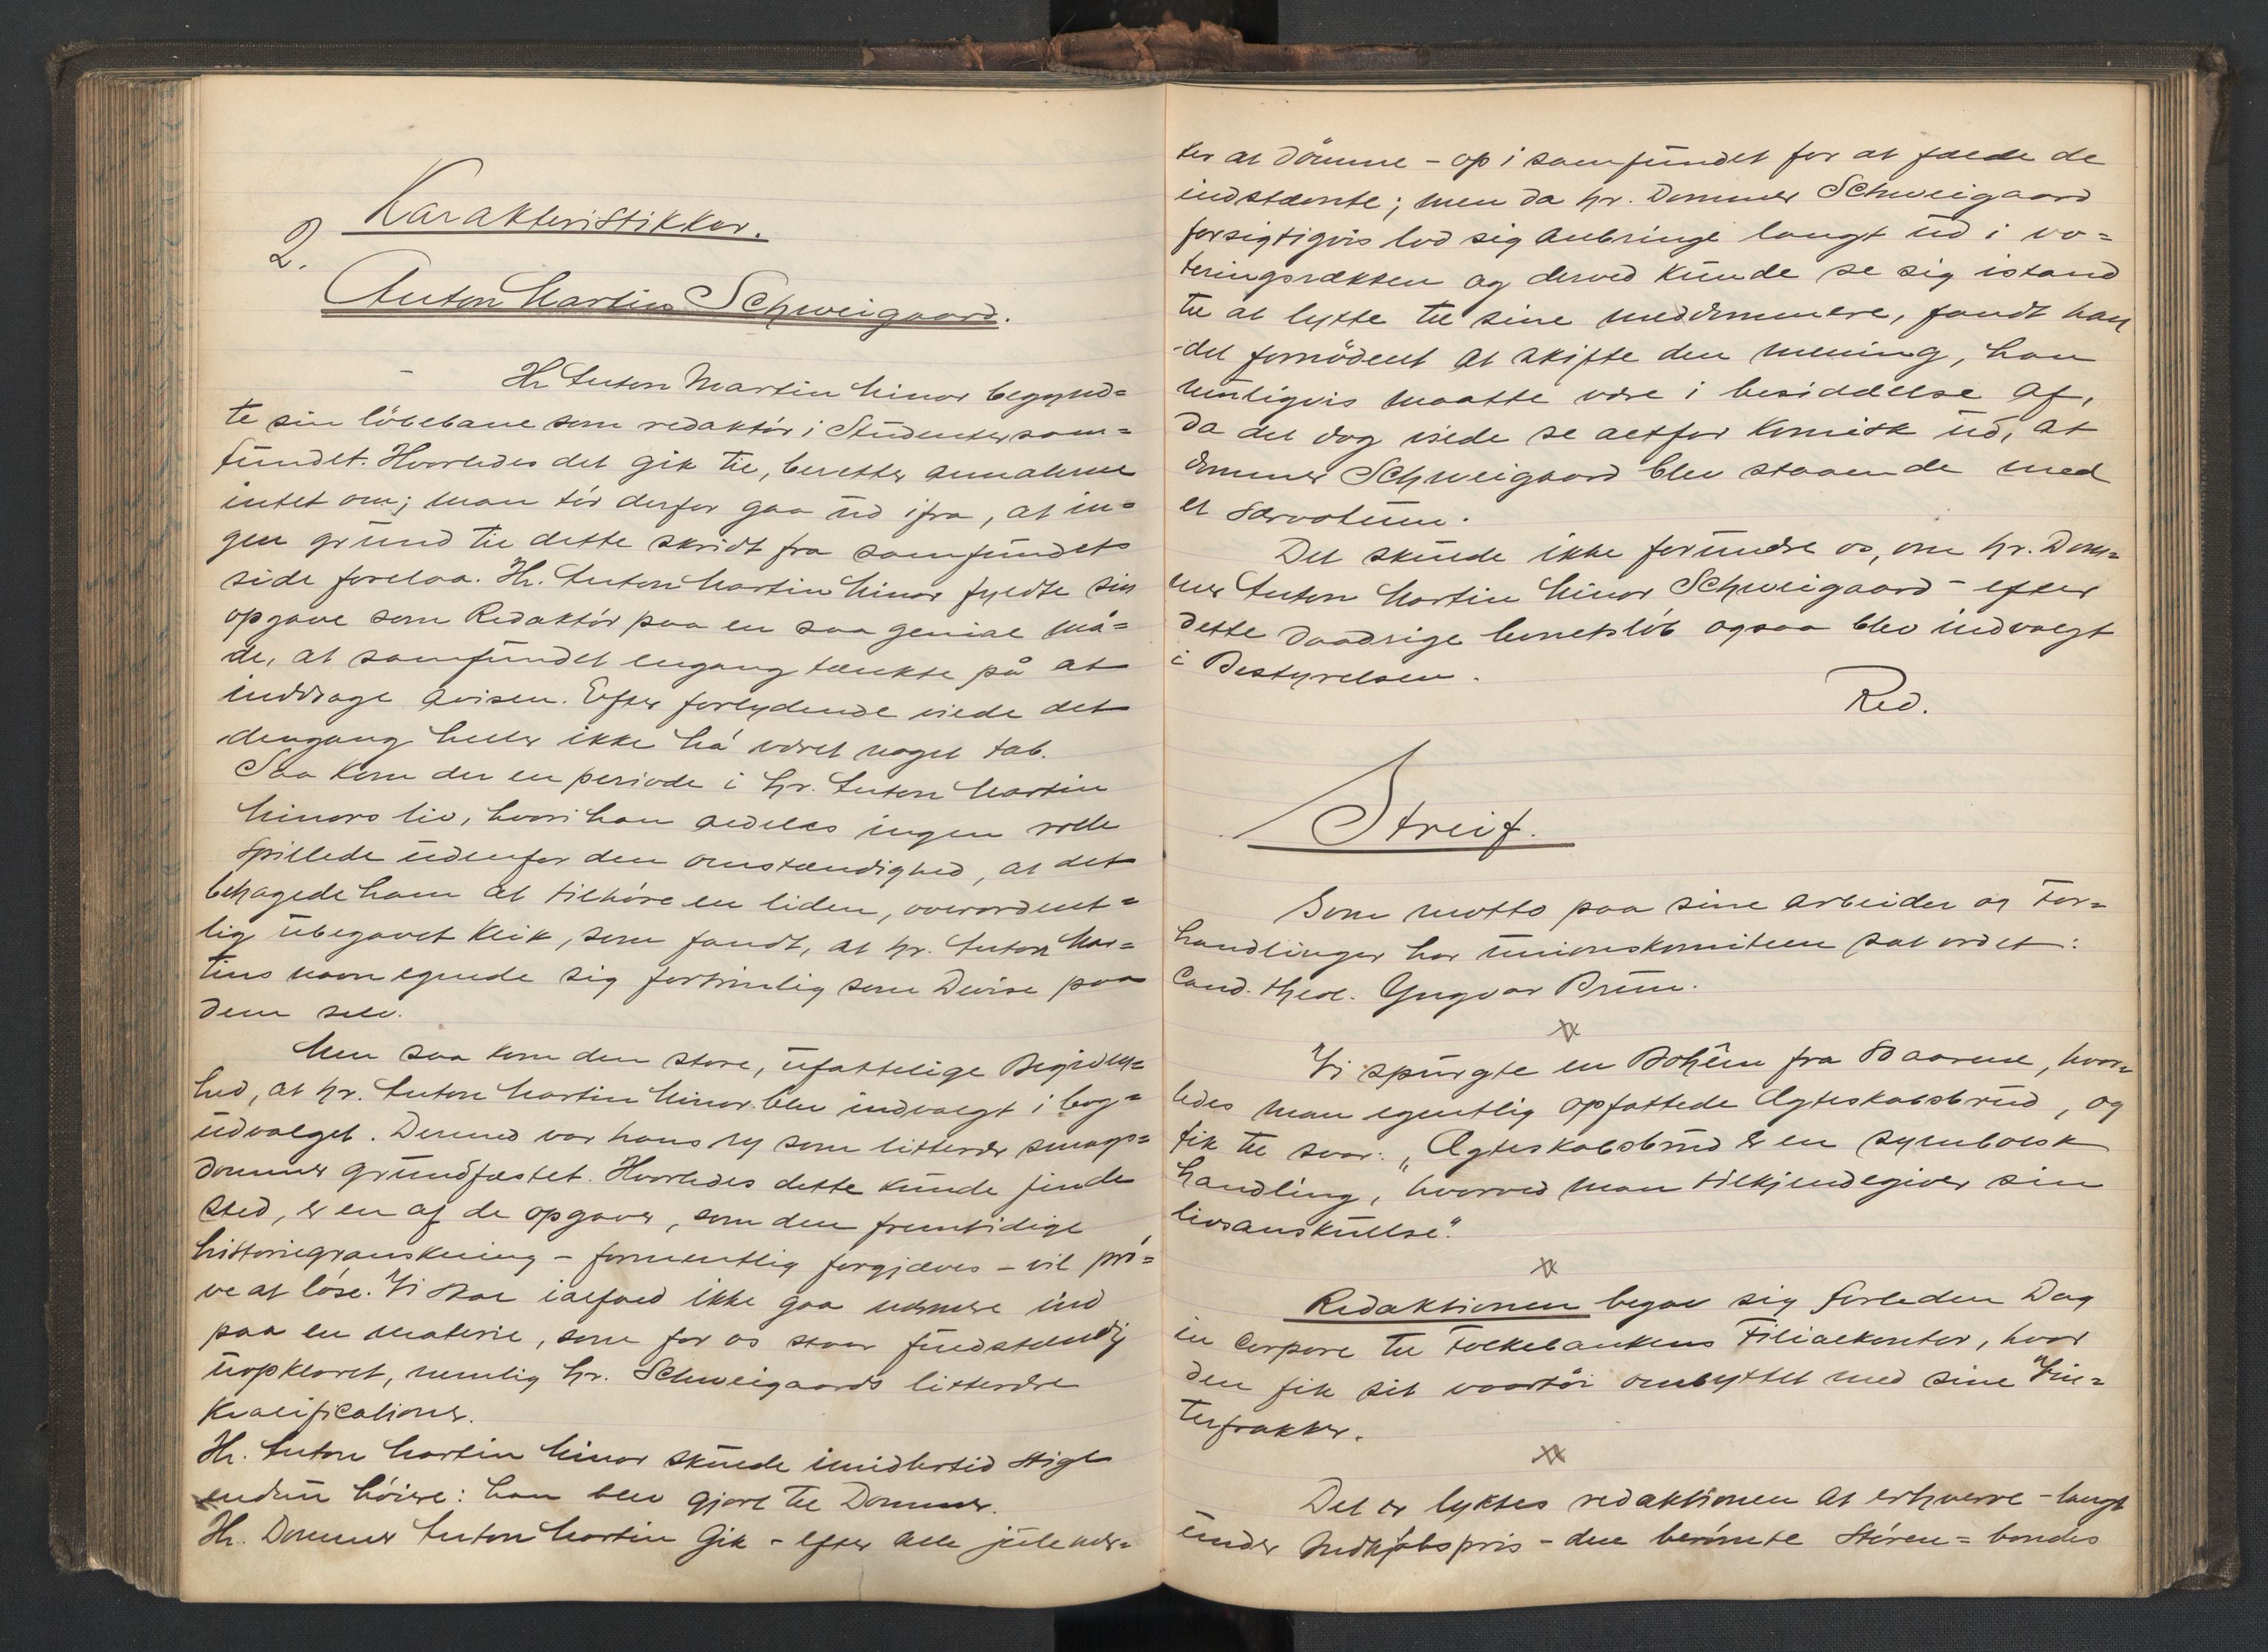 Karakteristikker.
2.
Anton Martin Schweigaard.
Hr Anton Martin Minor begynd=
te sin löbebane som redaktör i Studentersam=
fundet. Hvorledes det gik til, beretter annalerne
intet om; man tör derfor gaa ud ifra, at in=
gen grund til dette skridt fra samfundets
side forelaa. Hr. Anton Martin Minor fyldte sin
opgave som Redaktör paa en saa genial må=
de, at samfundet engang tænkte på at
inddrage avisen. Efter forlydende vilde det
dengang heller ikke há været noget tab.
Saa kom der en periode i hr. Anton Martin
Minors liv, hvori han aldeles ingen rolle
spillede udenfor den omstændighed, at det
behagede ham at tilhöre en liden, overordent=
lig ubegavet klik, som fandt, at hr. Anton Mar=
tins navn egnede sig fortrinlig som Devise paa
dem selv.
Men saa kom den store, ufattelige Begiven=
hed, at hr. Anton Martin Minor blev indvalgt i bog=
udvalget. Dermed var hans ry som litterær smags=
dommer grundfæstet. Hvorledes dette kunde finde
sted, er en af de opgaver, som den fremtidige
historiegranskning – formentlig forgjæves – vil prö=
ve at löse. Vi skal ialfald ikke gaa nærmere ind
paa en materie, som for os staar fuldstændig
uopklaret, nemlig hr. Schweigaards litterære
Kvalificationer.
Hr. Anton Martin Minor skulde imidlertid stige
endnu höiere: han blev gjort til Dommer.
Hr. Dommer Anton Martin Gik – efter alle
ker at dömme – op i samfundet for at fælde de
indstævnte; men da hr. Dommer Schweigaard
forsigtigvis lod sig anbringe langt ud i vo=
teringsrækken og derved kunde se sig istand
til at lytte til sine meddommere, fandt han
det fornödent at skifte den mening, han
muligvis maatte være i besiddelse af,
da det dog vilde se altfor komisk ud, at
dommer Schweigaard blev staaende med
et særvotum.
Det skulde ikke forundre os, om hr. Dom=
mer Anton Martin Minor Schweigaard – efter
dette daadrige levnetslöb ogsaa blev indvalgt
i Bestyrelsen.
Red.
Streif.
Som motto paa sine arbeider og For=
handlinger har unionskomiteen sat ordet:
Cand. theol. Yngvar Brun.
Vi spurgte en Bohêm fra 80 aarene, hvor=
ledes man egentlig opfattede Ægteskabsbrud, og
fik til svar: „Ægteskabsbrud er en symbolsk
Handling, hvorved man tilkjendegiver sin
livsanskuelse."
Redaktionen begav sig forleden Dag
in corpore til Folkebankens Filialkontor, hvor
den fik sit vaartöi ombyttet med sine Vin=
terfrakker.
Det er lyktes redaktionen at erhverve – langt
under Indkjöbspris – den berömte Stören=bondes